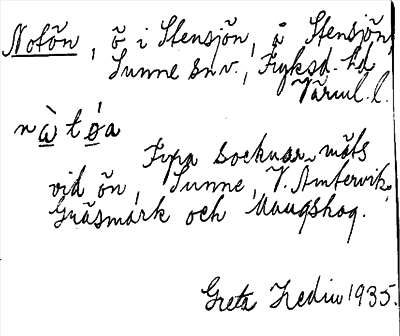 Notön, ö i Stensjön, å Stensjön,
Sunne sn v., Fryksd. hd
Värml. l.
nàtǿa
Fyra socknar möts
vid ön, Sunne, V. Ämtervik,
Gräsmark och Mangskog.
Greta Hedin 1935.